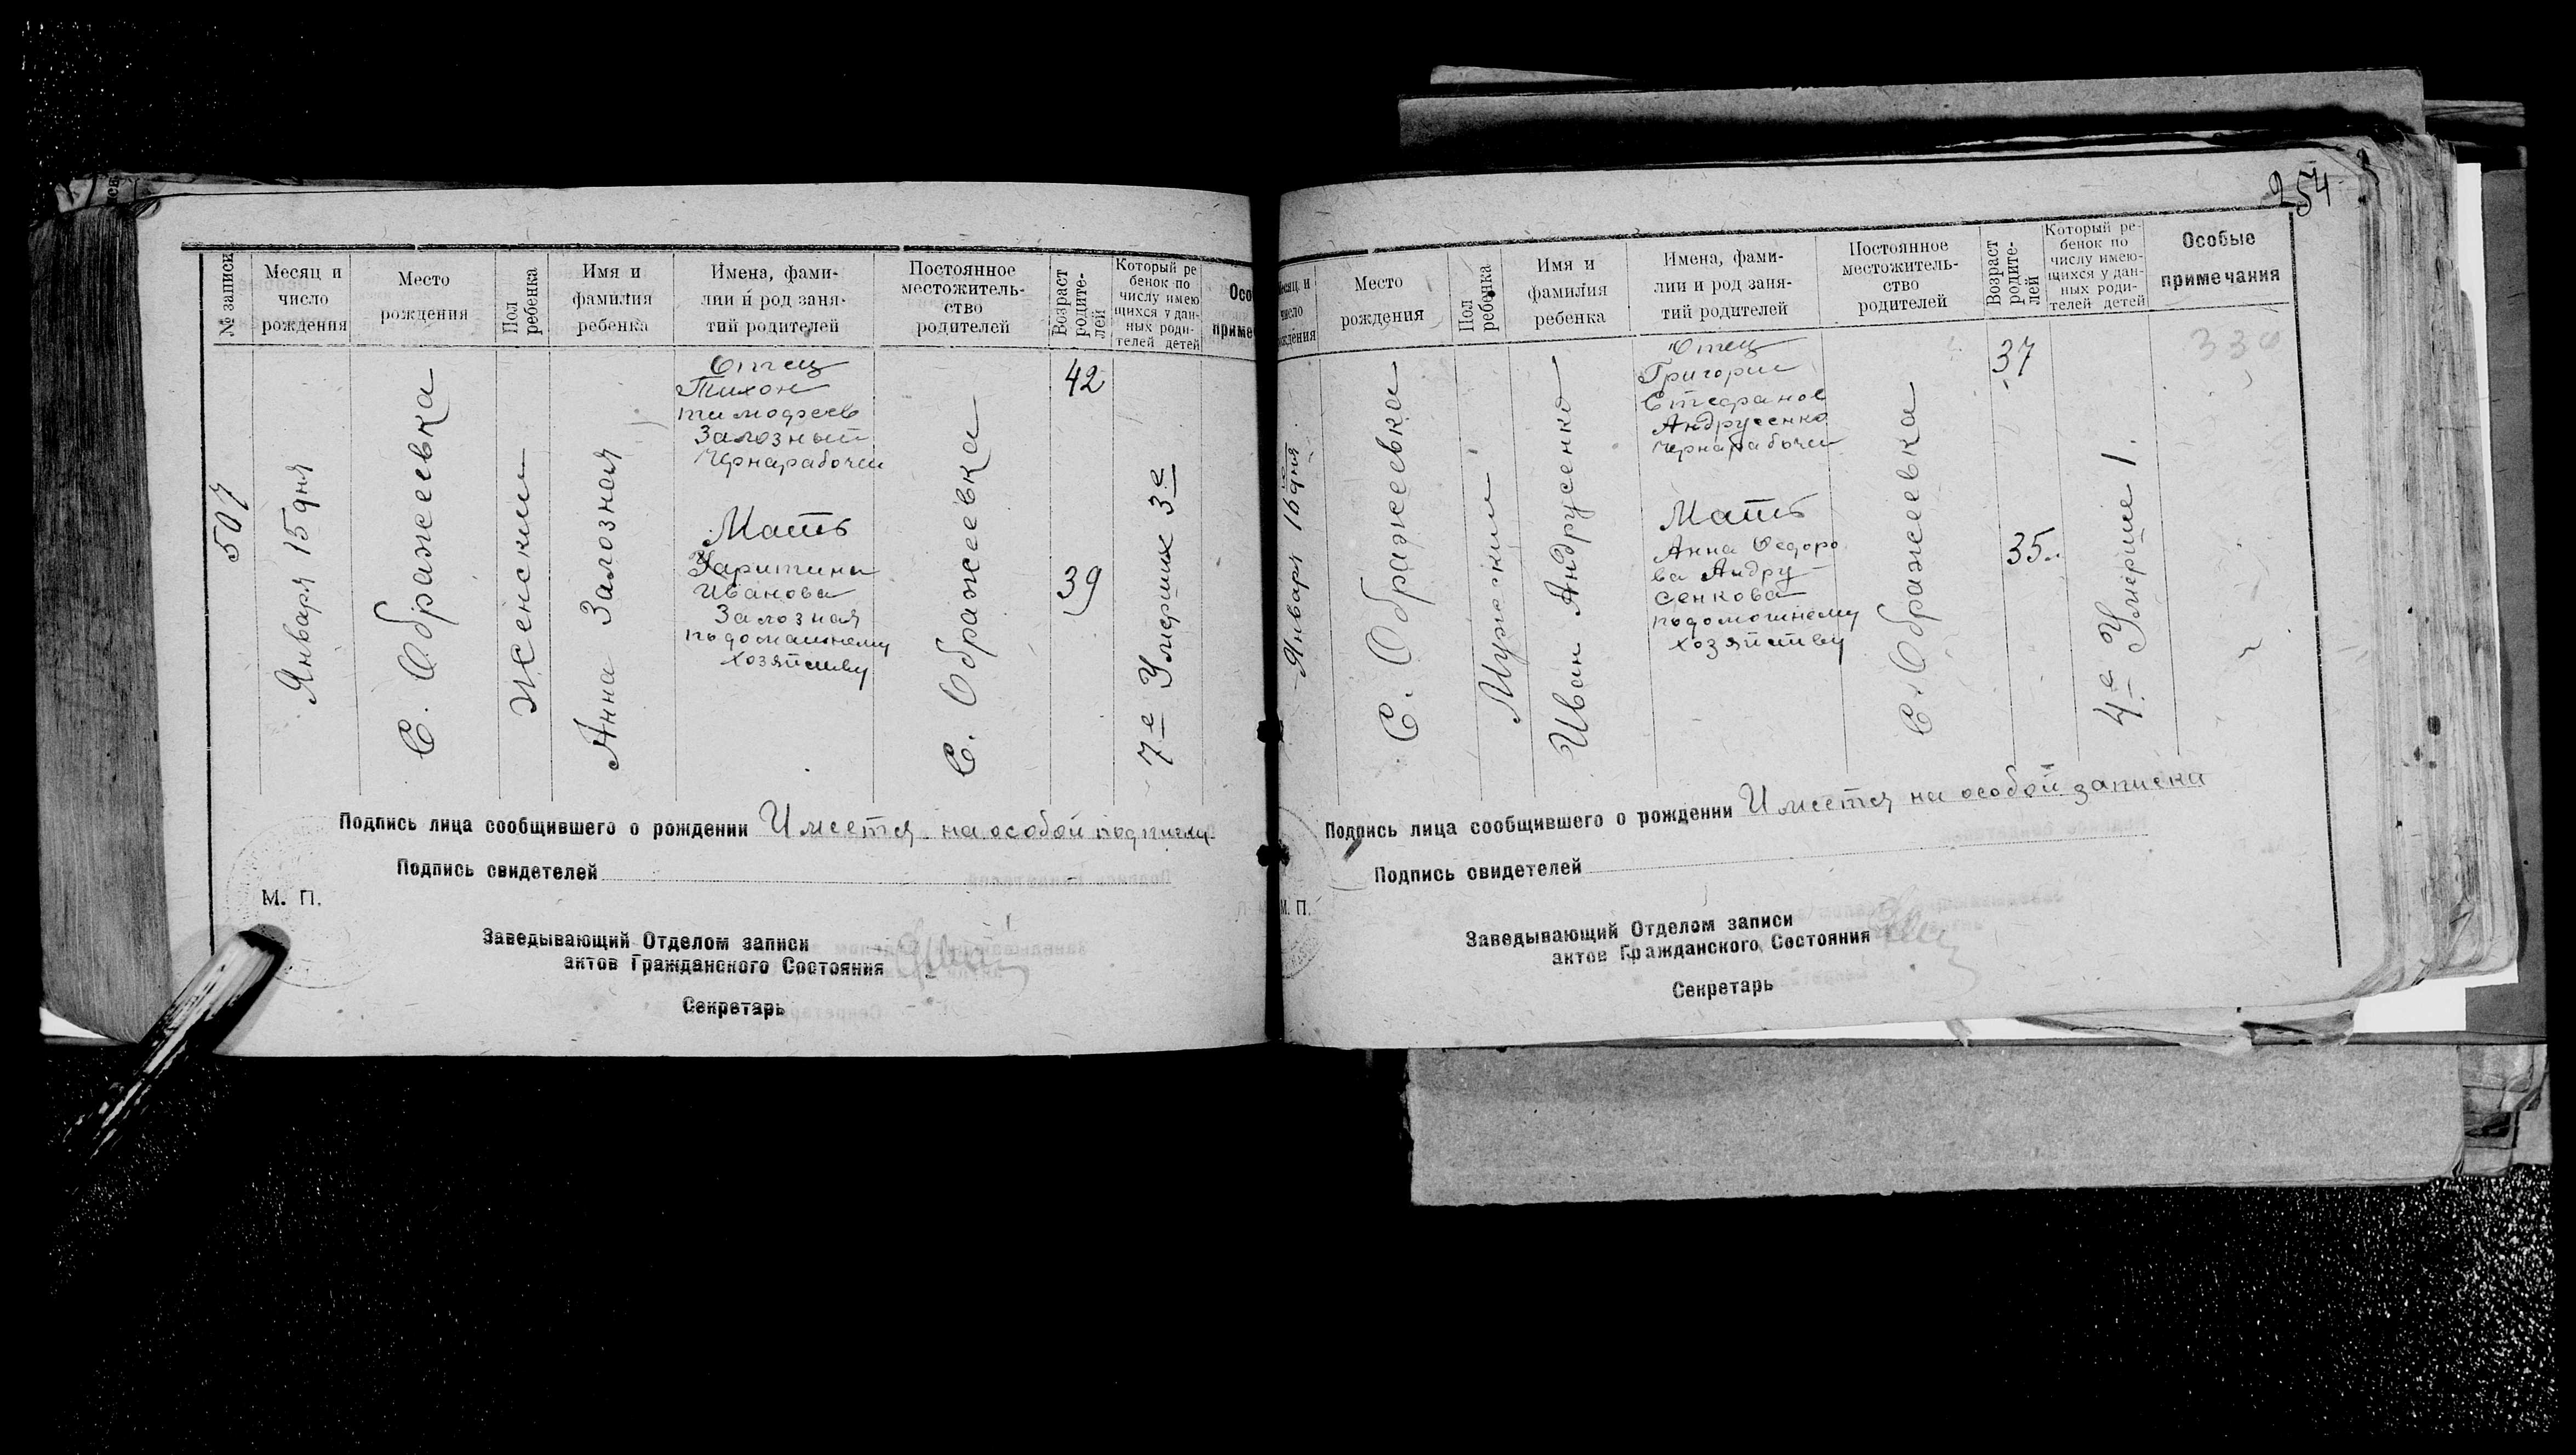 № записи
Месяц и
число
рождения
Место
рождения
Пол
ребенка
Имя и
фамилия
ребенка
Имена, фами-
лии и род заня-
тий родителей
Постоянное
местожитель-
ство
родителей
Возраст
родите-
лей
Который ре
бенок по
числу имею
щихся у дан-
ных роди-
телей детей
Осо
приме
507
Января 15 дня
С. Ображеевка
Женский
Анна Залозная
Отец
Тихон
Тимофеев
Залозный
Чернарабочей
Мать
Харитина
Иванова
Залозная
подомашнему
хозяйству
С. Ображеевка
42
39
7е Умерших 3е
Подпись лица сообщившего о рождении Имеется на особой подписки
Подпись свидетелей
М. П.
Заведывающий Отделом записи
актов Гражданского Состояния
Секретарь
254
есяц и
число
ождения
Место
рождения
Пол
ребенка
Имя и
фамилия
ребенка
Имена, фами-
лии и род заня-
тий родителей
Постоянное
местожитель-
ство
родителей
Возраст
родите-
лей
Который ре-
бенок по
числу имею-
щихся у дан-
ных роди-
телей детей
Особые
примечания
Января 16 дня
С. Ображеевка
Мужский
Иван Андрусенко
Отец
Григорий
Стефанов
Андрусенко
Чернарабочей
Мать
Анна Федоро
ва Андру
сенкова
подомошнему
хозяйству
С. Ображеевка
37
35
4е Умерше 1.
330
Подпись лица сообщившего о рождении Имеется на особой записка
Подпись свидетелей
М. П.
Заведывающий Отделом записи
актов Гражданского Состояния
Секретарь